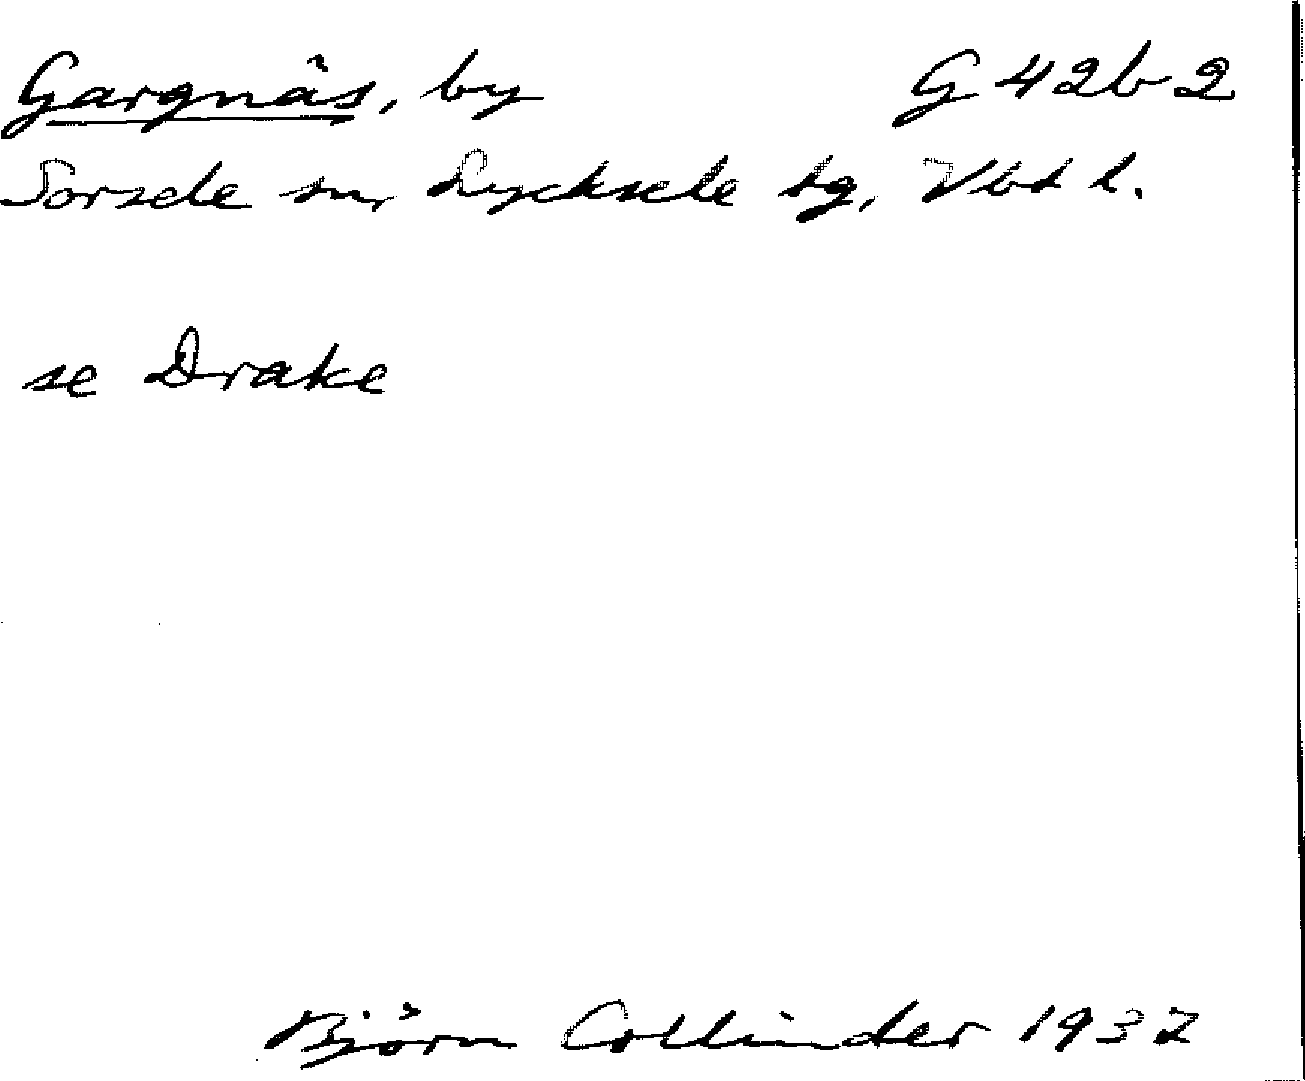 Gargnäs, by G 42 b 2
Sorsele sn, Lycksele tg, Vbt l.
se Drake
Björn Collinder 1937